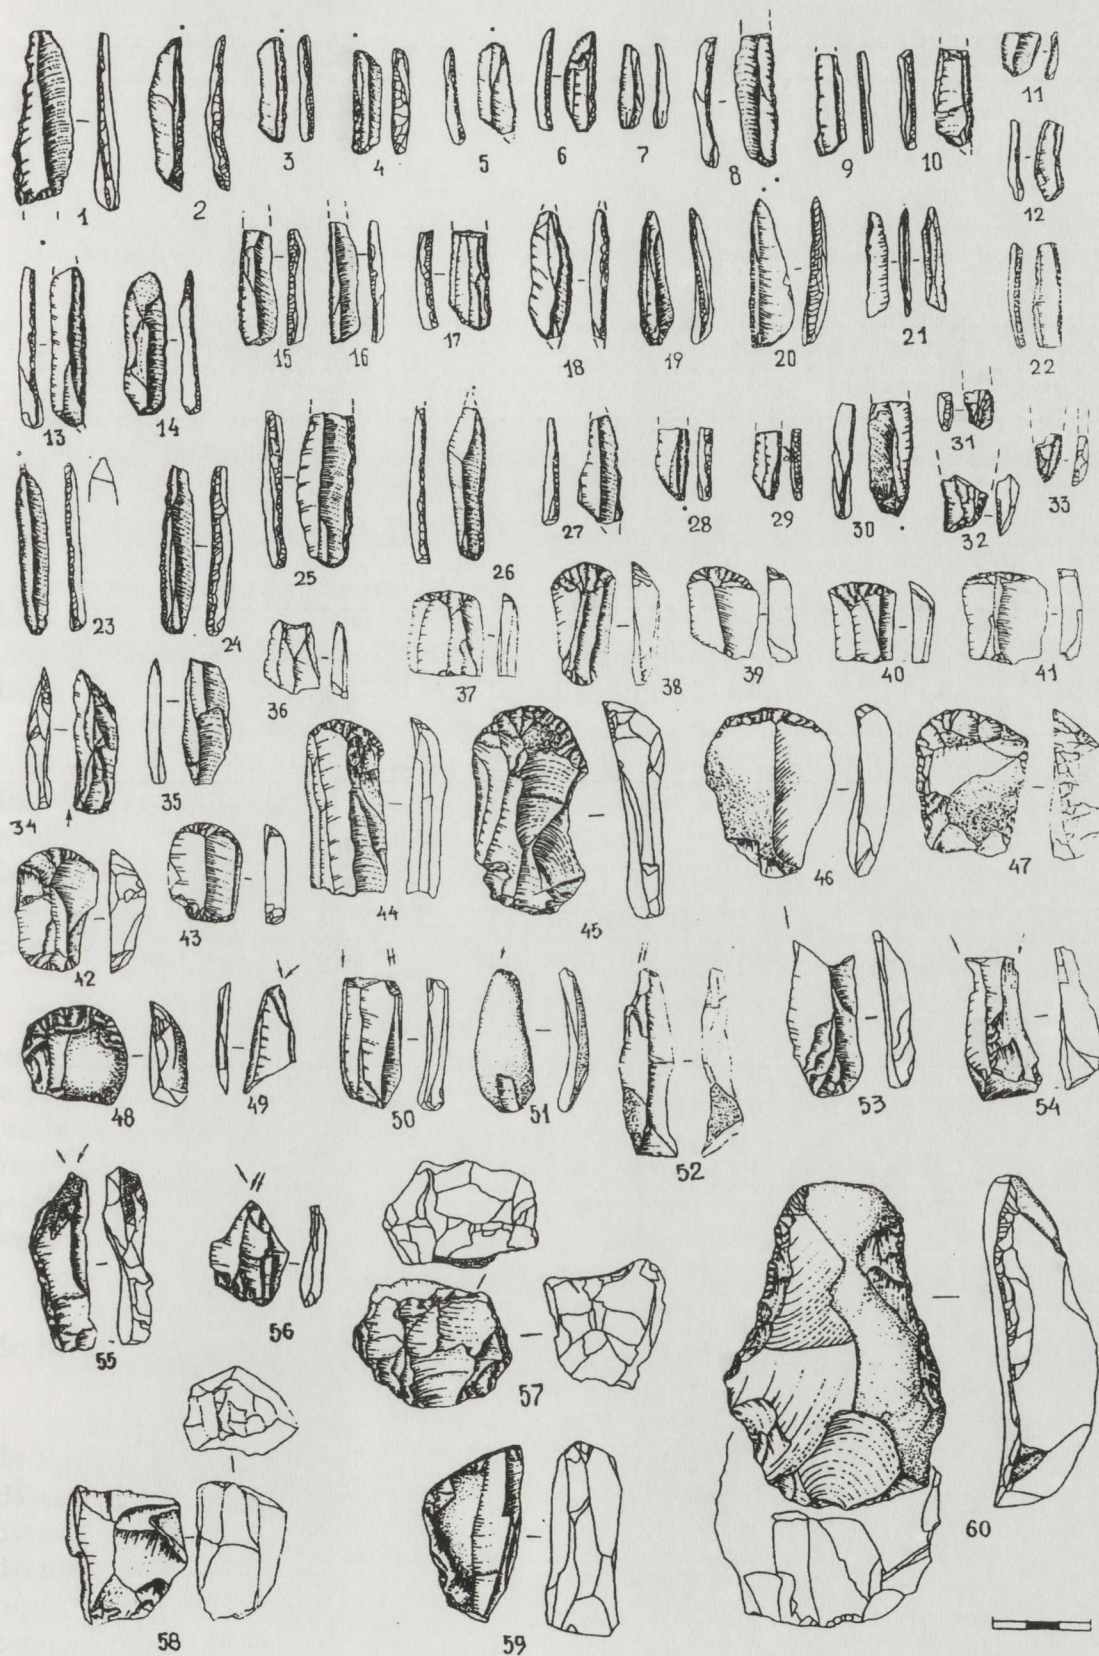 1 2 3 4 5 6 7 8 9 10 11
12
13 14 15 16 17 18 19 20 21 22
23 A 24 25 26 27 28 29 30 31 32 33
34 35 36 37 38 39 40 41
42 43 44 45 46 47
48 49 50 51 52 53 54
55 56 57 60
58 59